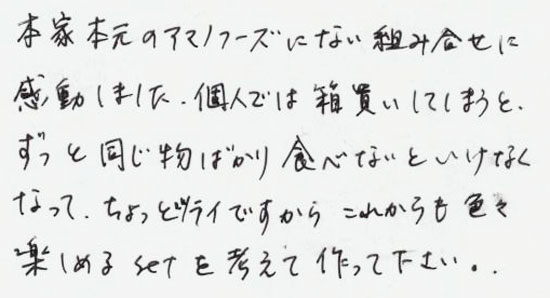 本家本元のアマノフーズにない組み合せに
感動しました。個人では箱買いしてしまうと、
ずっと同じ物ばかり食べないといけなく
なって、ちょっとツライですから これからも色々
楽しめる setを考えて作って下さい。.